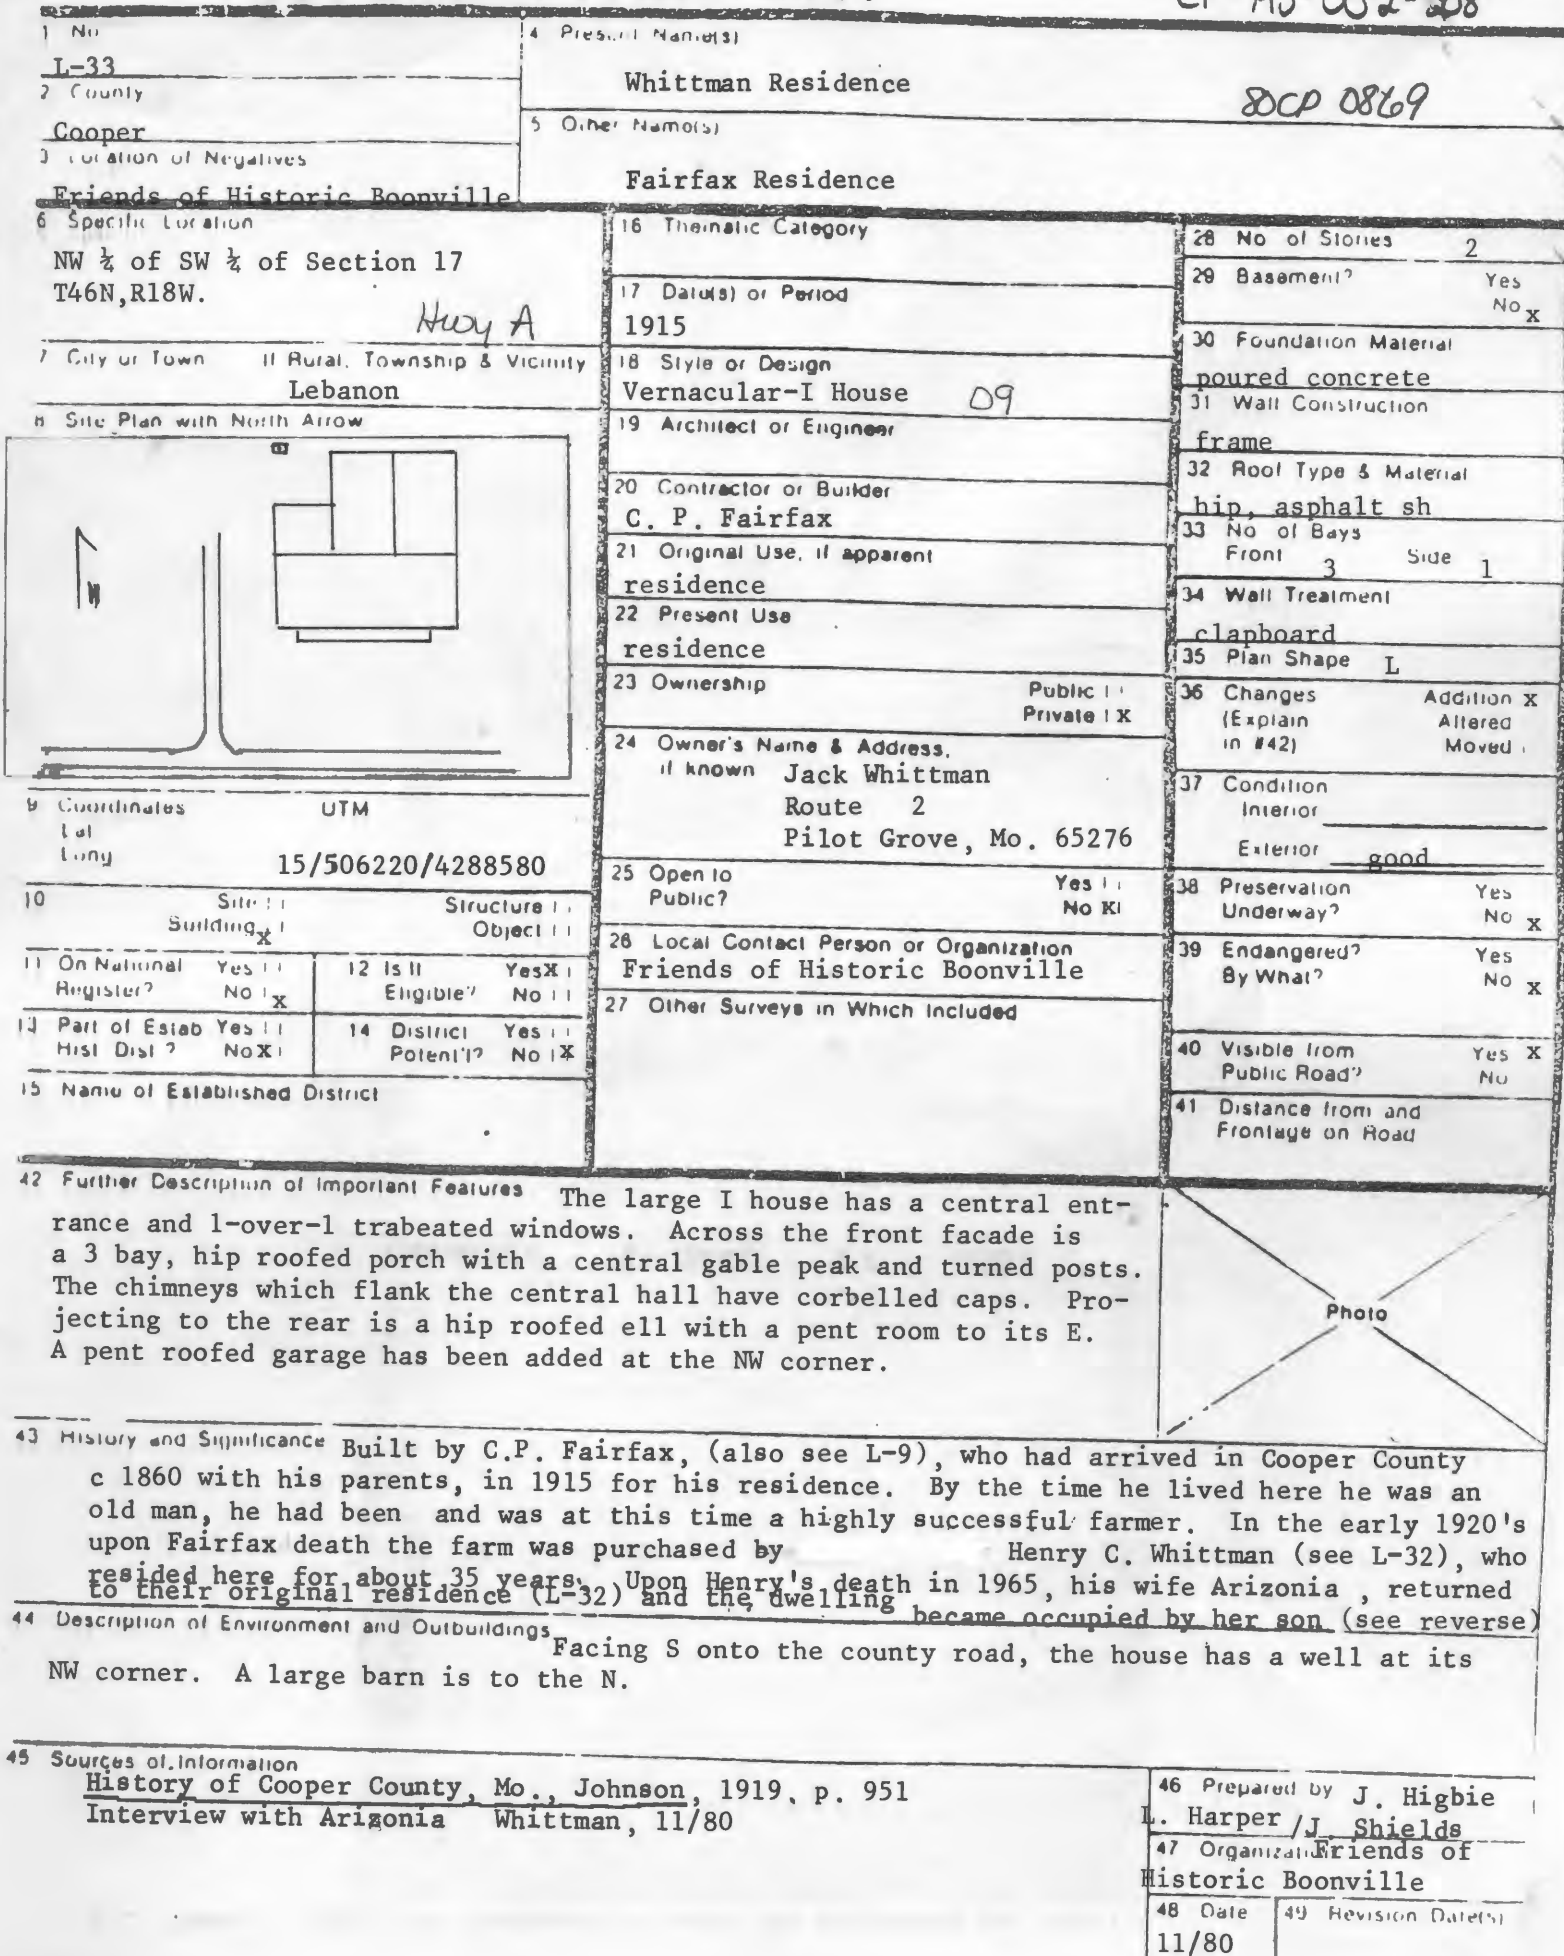 1 No
L-33
2 County
Cooper
3 Location of Negatives
Friends of Historic Boonville
4 Present Name(s)
Whittman Residence
80CP 0869
5 Other Name(s)
Fairfax Residence
6 Specific Location
NW ¼ of SW ¼ of Section 17
T46N,R18W.
Hwy A
7 City or Town If Rural, Township & Vicinity
Lebanon
8 Site Plan with North Arrow
N
9 Coordinates UTM
Lat
Long
15/506220/4288580
10 Site Structure
Building x Object
11 On National Register? Yes No x
12 Is It Eligible? Yes X No
13 Part of Estab Hist Dist? Yes No X
14 District Potent'l? Yes No X
15 Name of Established District
16 Thematic Category
17 Date(s) or Period
1915
18 Style or Design
Vernacular-I House 09
19 Architect or Engineer
20 Contractor or Builder
C. P. Fairfax
21 Original Use, if apparent
residence
22 Present Use
residence
23 Ownership Public
Private X
24 Owner's Name & Address,
if known Jack Whittman
Route 2
Pilot Grove, Mo. 65276
25 Open to Yes
Public? No X
26 Local Contact Person or Organization
Friends of Historic Boonville
27 Other Surveys in Which Included
28 No of Stories 2
29 Basement? Yes
No x
30 Foundation Material
poured concrete
31 Wall Construction
frame
32 Roof Type & Material
hip, asphalt sh
33 No of Bays
Front 3 Side 1
34 Wall Treatment
clapboard
35 Plan Shape L
36 Changes Addition X
(Explain Altered
in #42) Moved
37 Condition
Interior
Exterior good
38 Preservation Yes
Underway? No x
39 Endangered? Yes
By What? No x
40 Visible from Yes X
Public Road? No
41 Distance from and
Frontage on Road
42 Further Description of Important Features The large I house has a central ent-
rance and 1-over-1 trabeated windows. Across the front facade is
a 3 bay, hip roofed porch with a central gable peak and turned posts.
The chimneys which flank the central hall have corbelled caps. Pro-
jecting to the rear is a hip roofed ell with a pent room to its E.
A pent roofed garage has been added at the NW corner.
Photo
43 History and Significance Built by C.P. Fairfax, (also see L-9), who had arrived in Cooper County
c 1860 with his parents, in 1915 for his residence. By the time he lived here he was an
old man, he had been and was at this time a highly successful farmer. In the early 1920's
upon Fairfax death the farm was purchased by Henry C. Whittman (see L-32), who
resided here for about 35 years. Upon Henry's death in 1965, his wife Arizonia , returned
to their original residence (L-32) and the dwelling became occupied by her son (see reverse)
44 Description of Environment and Outbuildings Facing S onto the county road, the house has a well at its
NW corner. A large barn is to the N.
45 Sources of Information
History of Cooper County, Mo., Johnson, 1919, p. 951
Interview with Arizonia Whittman, 11/80
46 Prepared by J. Higbie
L. Harper /J. Shields
47 Organization Friends of
Historic Boonville
48 Date
11/80
49 Revision Date(s)